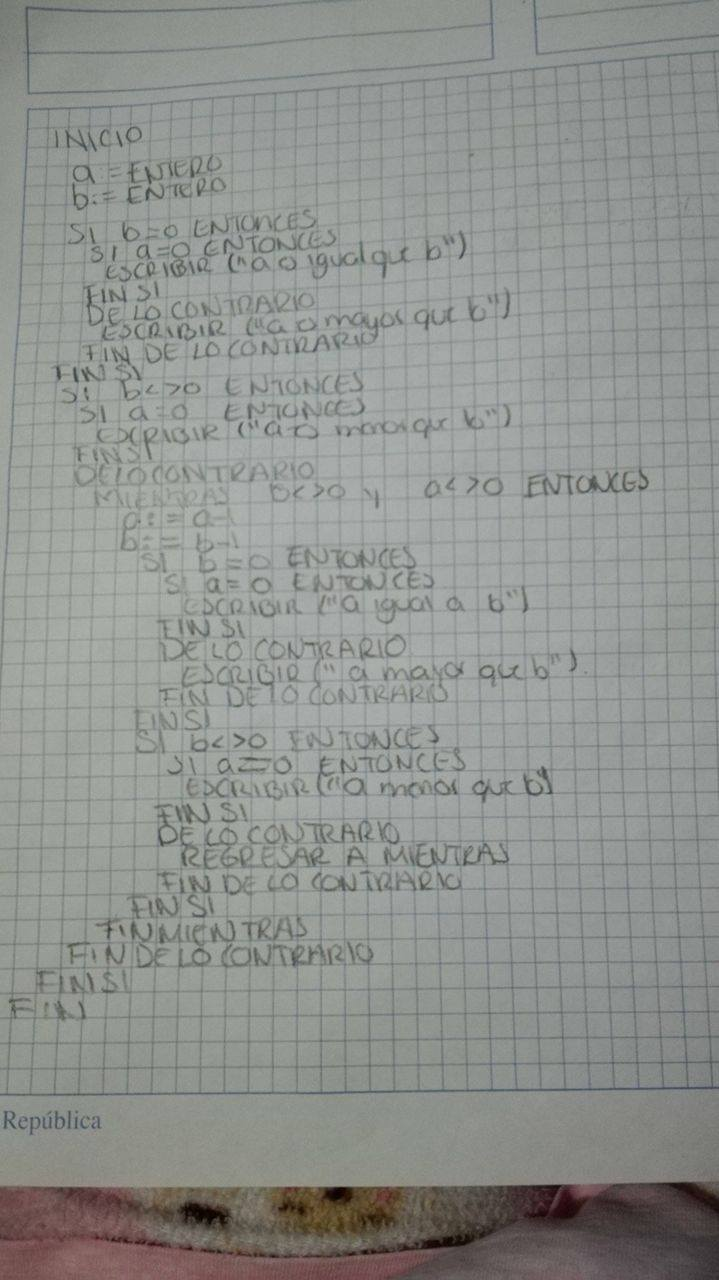 INICIO
a := ENTERO
b := ENTERO
SI b=0 ENTONCES
SI a=0 ENTONCES
ESCRIBIR ("a es igual que b")
FIN SI
DE LO CONTRARIO
ESCRIBIR ("a es mayor que b")
FIN DE LO CONTRARIO
FIN SI
SI b<>0 ENTONCES
SI a=0 ENTONCES
ESCRIBIR ("a es menor que b")
FIN SI
DE LO CONTRARIO
MIENTRAS b<>0 y a<>0 ENTONCES
a := a-1
b := b-1
SI b=0 ENTONCES
SI a=0 ENTONCES
ESCRIBIR ("a igual a b")
FIN SI
DE LO CONTRARIO
ESCRIBIR ("a mayor que b").
FIN DE LO CONTRARIO
FIN SI
SI b<>0 ENTONCES
SI a=0 ENTONCES
ESCRIBIR ("a menor que b")
FIN SI
DE LO CONTRARIO
REGRESAR A MIENTRAS
FIN DE LO CONTRARIO
FIN SI
FIN MIENTRAS
FIN DE LO CONTRARIO
FIN SI
FIN
República